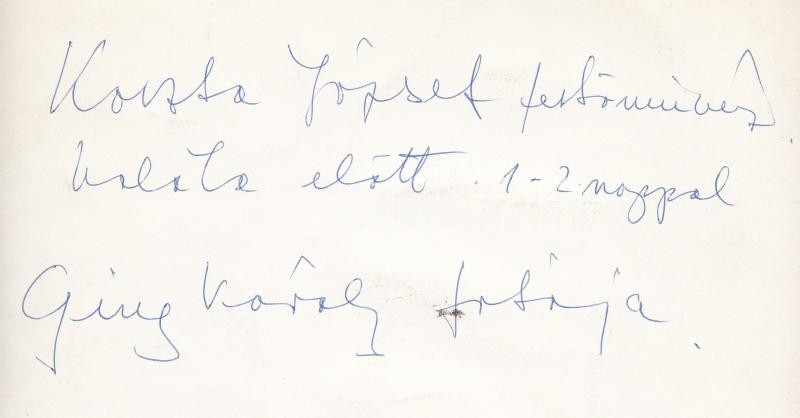 Koszta József festőművész
halála előtt 1-2 nappal
Gink Károly fotója.